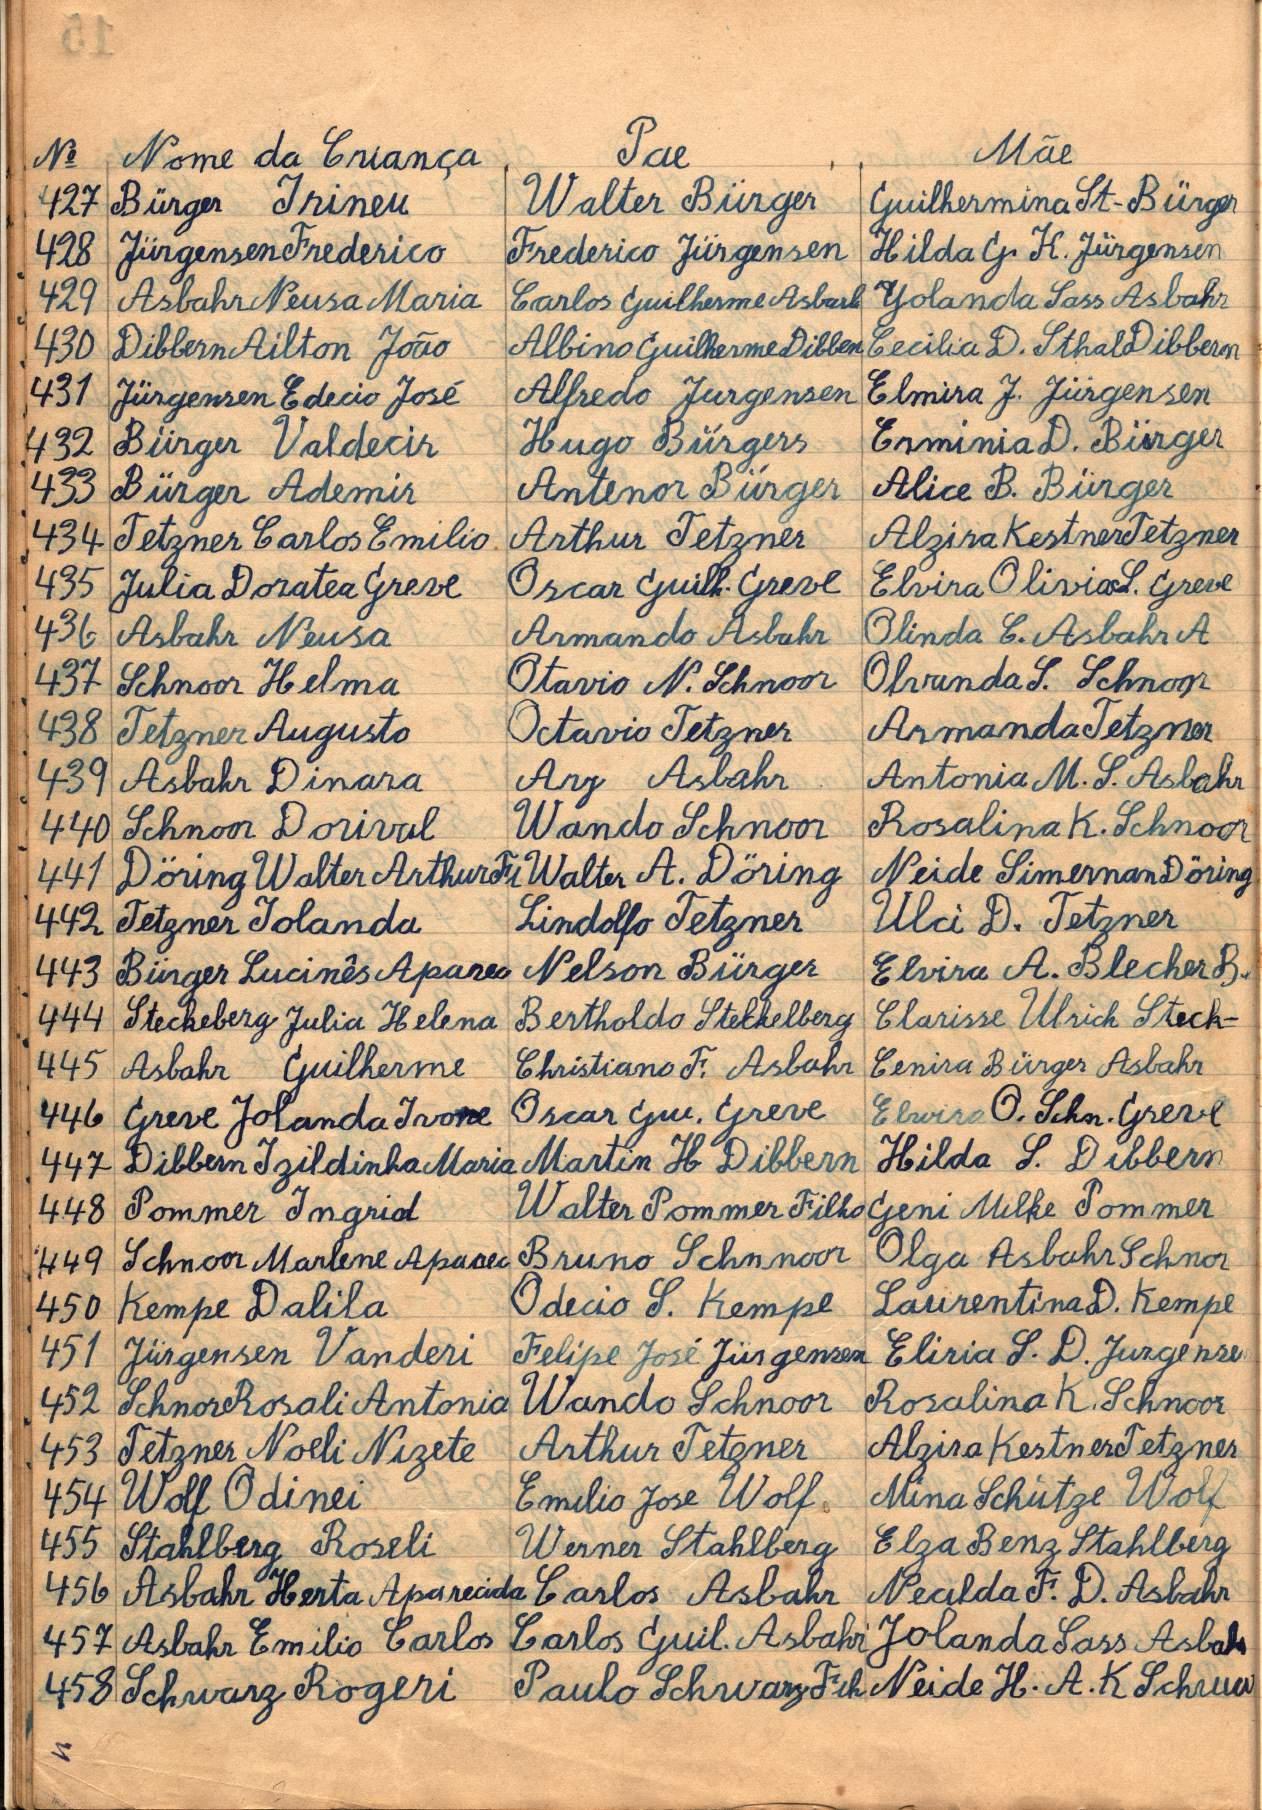 15
Nº Nome da Criança Pae Mãe
427 Bürger Irineu Walter Bürger Guilhermina St-Bürger
428 Jürgensen Frederico Frederico Jürgensen Hilda G. K. Jürgensen
429 Asbahr Neusa Maria Carlos Guilherme Asbarh Yolanda Sass Asbahr
430 Dibbern Ailton João Albino Guilherme Dibben Cecilia D. Sthal Dibbern
431 Jürgensen Edecio José Alfredo Jurgensen Elmira J. Jürgensen
432 Bürger Valdecir Hugo Bürgers Erminia D. Bürger
433 Bürger Ademir Antenor Bürger Alice B. Bürger
434 Tetzner Carlos Emilio Arthur Tetzner Alzira Kestner Tetzner
435 Julia Doratea Greve Oscar Guilh. Greve Elvira Olivia S. Greve
436 Asbahr Neusa Armando Asbahr Olinda C. Asbahr A
437 Schnoor Helma Otavio N. Schnoor Olvanda S. Schnoor
438 Tetzner Augusto Octavio Tetzner Armanda Tetzner
439 Asbahr Dinara Ary Asbahr Antonia M. S. Asbahr
440 Schnoor Dorival Wando Schnoor Rosalina K. Schnoor
441 Döring Walter Arthur Fi Walter A. Döring Neide Simernan Döring
442 Tetzner Iolanda Lindolfo Tetzner Ulci D. Tetzner
443 Bürger Lucinês Aparec Nelson Bürger Elvira A. Blecher B.
444 Steckeberg Julia Helena Bertholdo Steckelberg Clarisse Ulrich Steck-
445 Asbahr Guilherme Christiano F. Asbahr Cenira Bürger Asbahr
446 Greve Jolanda Ivone Oscar Gui. Greve Elvira O. Schn. Greve
447 Dibbern Izildinha Maria Martin H Dibbern Hilda S. Dibbern
448 Pommer Ingrid Walter Pommer Filho Geni Milke Pommer
449 Schnoor Marlene Aparec Bruno Schnnoor Olga Asbahr Schnor
450 Kempe Dalila Odecio S. Kempe Laurentina D. Kempe
451 Jürgensen Vanderi Felipe José Jürgensen Eliria S. D. Jurgense
452 Schnor Rosali Antonia Wando Schnoor Rosalina K. Schnoor
453 Tetzner Noeli Nizete Arthur Tetzner Alzira Kestner Tetzner
454 Wolf Odinei Emilio Jose Wolf. Mina Schütze Wolf
455 Stahlberg Roseli Werner Stahlberg Elza Benz Stahlberg
456 Asbahr Herta Aparecida Carlos Asbahr Nealda F. D. Asbahr
457 Asbahr Emilio Carlos Carlos Guil. Asbahr Jolanda Sass Asbah
458 Schwarz Rogeri Paulo Schwarz Filh Neide H. A. K